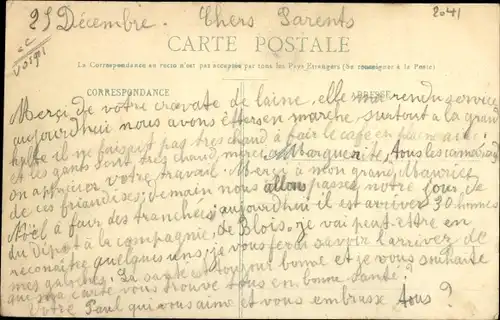 23 Décembre. Chers Parents 2041
CARTE POSTALE
La Correspondance au recto n'est pas acceptée par tous les Pays Étrangers (Se renseigner à la Poste)
CORRESPONDANCE ADRESSE
Vosges
Merçi de votre cravate de laine, elle rend service
aujourdhui nous avons en marche, surtout a la grand
halte il ne faisait pas tres chaud a fair le café en plaine air.
et les gants sont tres chaud, merci a Marguerite, tous les camarad
on apprécier votre travail. Merçi a mon grand Maurice
de ces friandises, demain nous allons passer notre jour de
Noël a fair des tranchées, aujourdhui il est arriver 30 hommes
du Dépot a la compagnie, de Blois. je vai peut-etre en
reconaitre quelques uns, je vous ferai savoir l'arrivez de
mes galoches. La santé est toujour bonne et je vous souhaite
que sete carte vous trouve tous en bonne santé.
Votre Paul qui vous aime et vous embrasse tous